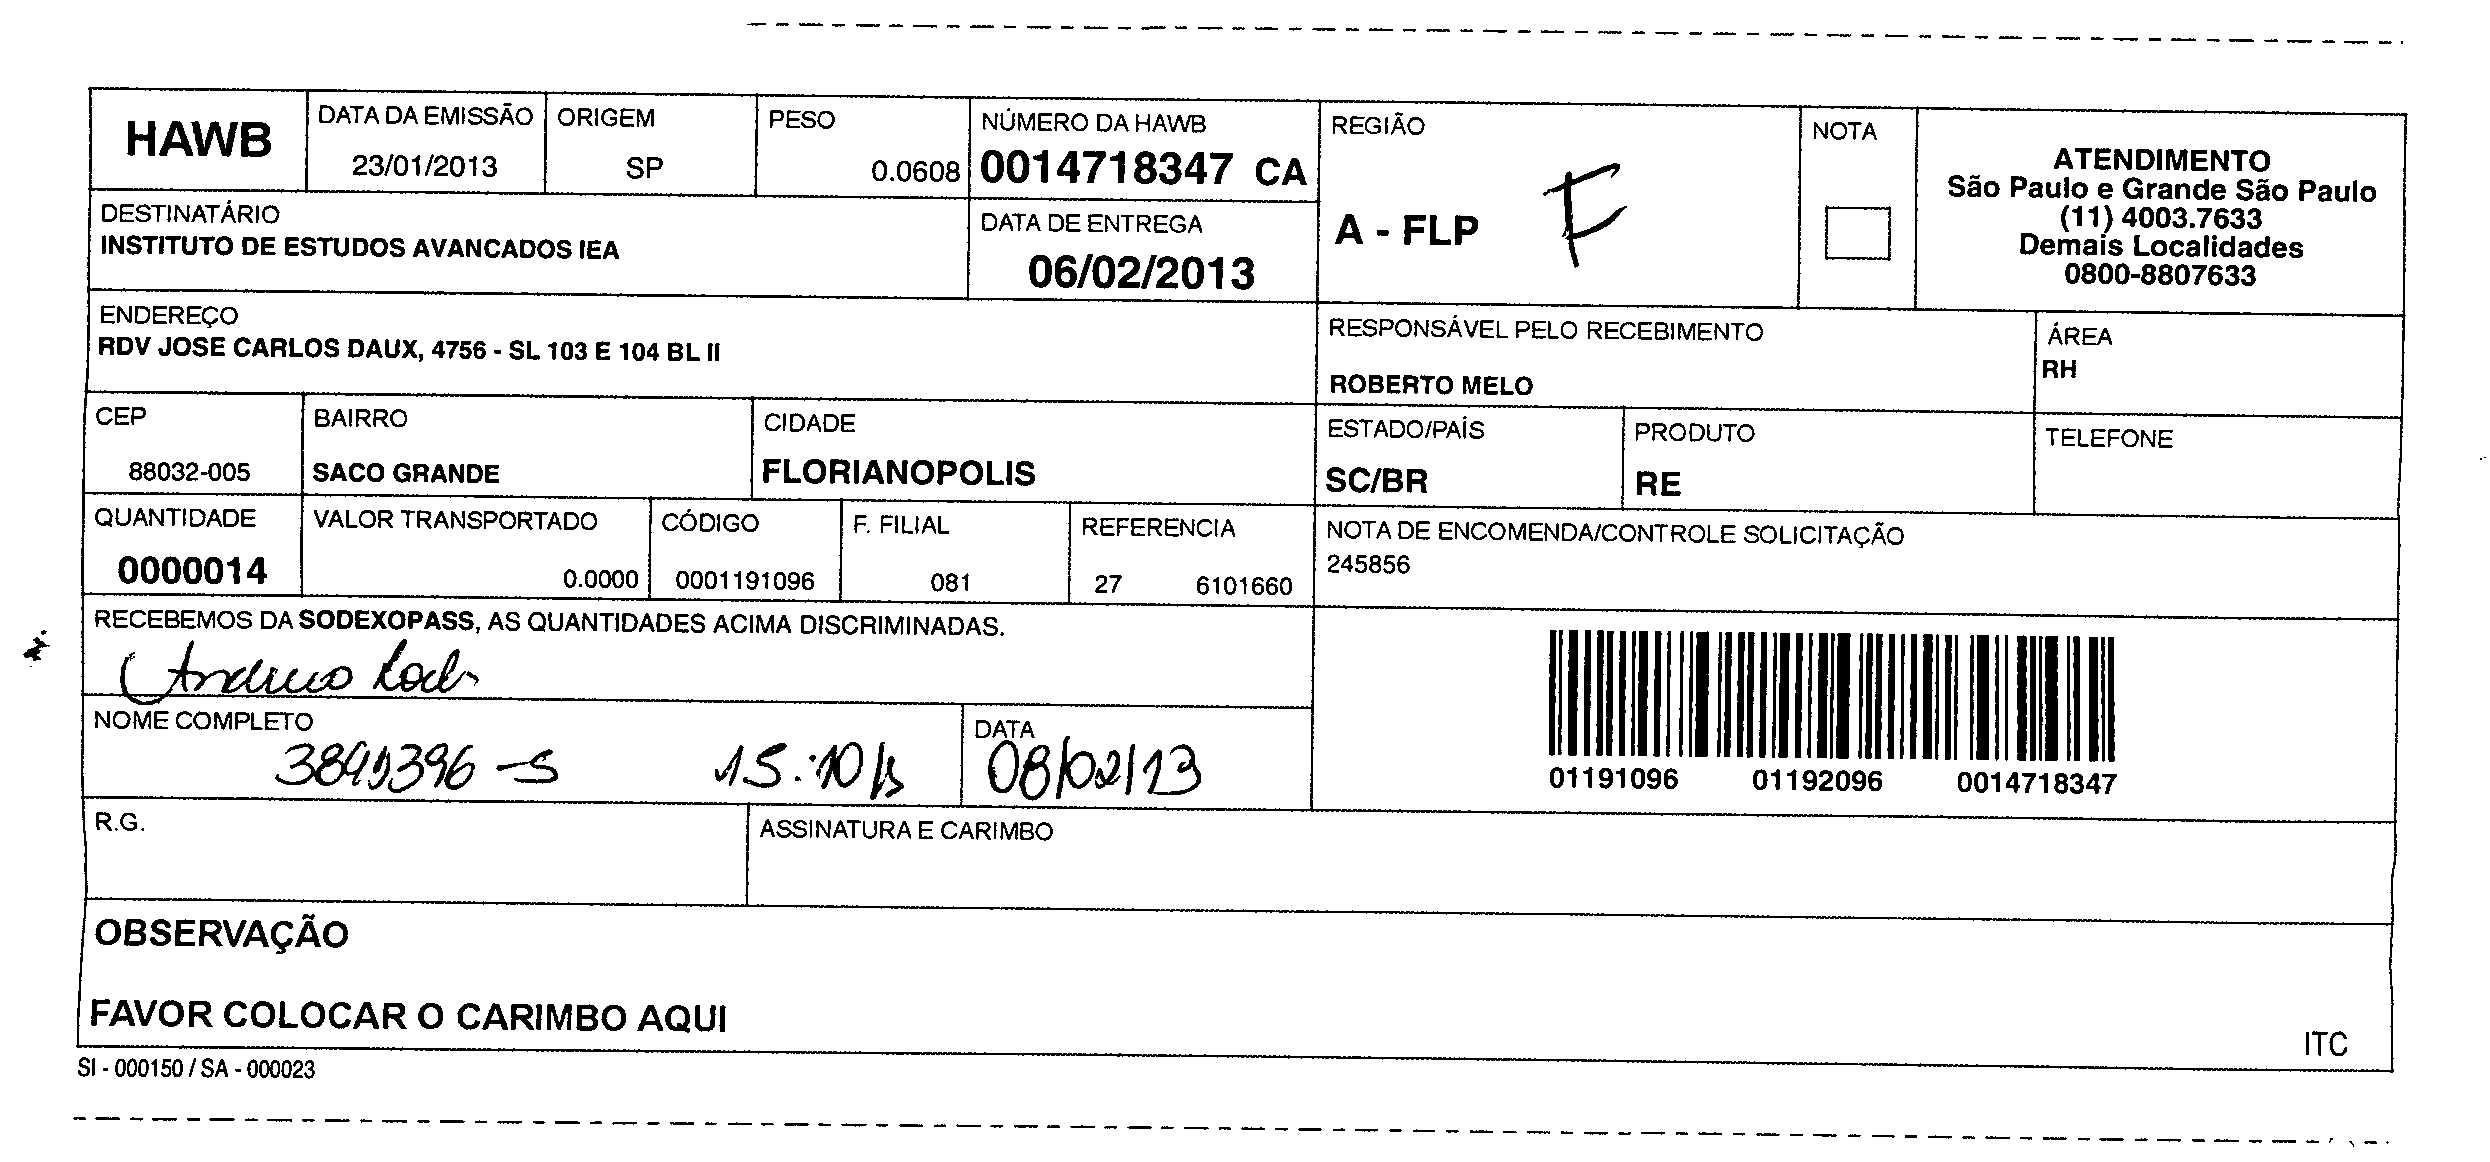 HAWB
DATA DA EMISSÃO
23/01/2013
ORIGEM
SP
PESO
0.0608
NÚMERO DA HAWB
0014718347 CA
REGIÃO
A - FLP F
NOTA
ATENDIMENTO
São Paulo e Grande São Paulo
(11) 4003.7633
Demais Localidades
0800-8807633
DESTINATÁRIO
INSTITUTO DE ESTUDOS AVANCADOS IEA
DATA DE ENTREGA
06/02/2013
ENDEREÇO
RDV JOSE CARLOS DAUX, 4756 - SL 103 E 104 BL II
RESPONSÁVEL PELO RECEBIMENTO
ROBERTO MELO
ÁREA
RH
CEP
88032-005
BAIRRO
SACO GRANDE
CIDADE
FLORIANOPOLIS
ESTADO/PAÍS
SC/BR
PRODUTO
RE
TELEFONE
QUANTIDADE
0000014
VALOR TRANSPORTADO
0.0000
CÓDIGO
0001191096
F. FILIAL
081
REFERENCIA
27 6101660
NOTA DE ENCOMENDA/CONTROLE SOLICITAÇÃO
245856
RECEBEMOS DA SODEXOPASS, AS QUANTIDADES ACIMA DISCRIMINADAS.
NOME COMPLETO
15:10h
DATA
08/02/13
01191096 01192096 0014718347
R.G.
ASSINATURA E CARIMBO
OBSERVAÇÃO
FAVOR COLOCAR O CARIMBO AQUI
ITC
SI - 000150 / SA - 000023